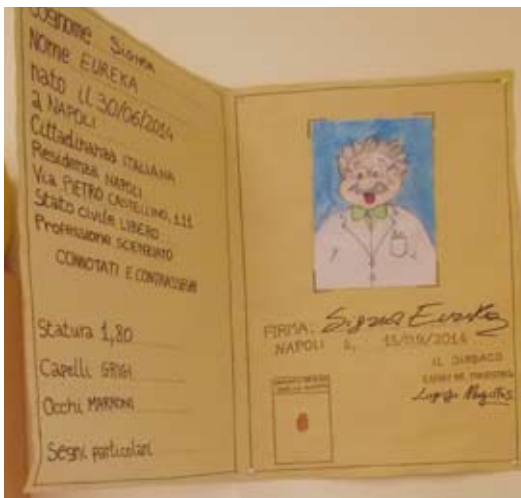 Cognome SIGMA
Nome EUREKA
nato il 30/06/2014
a NAPOLI
Cittadinanza ITALIANA
Residenza NAPOLI
Via PIETRO CASTELLINO, 111
Stato civile LIBERO
Professione SCENZIATO
CONNOTATI E CONTRASSEGNI
Statura 1,80
Capelli GRIGI
Occhi MARRONI
Segni particolari
FIRMA. Sigma Eureka
NAPOLI li, 15/09/2014
IL SINDACO
LUIGI DE MAGISTRIS